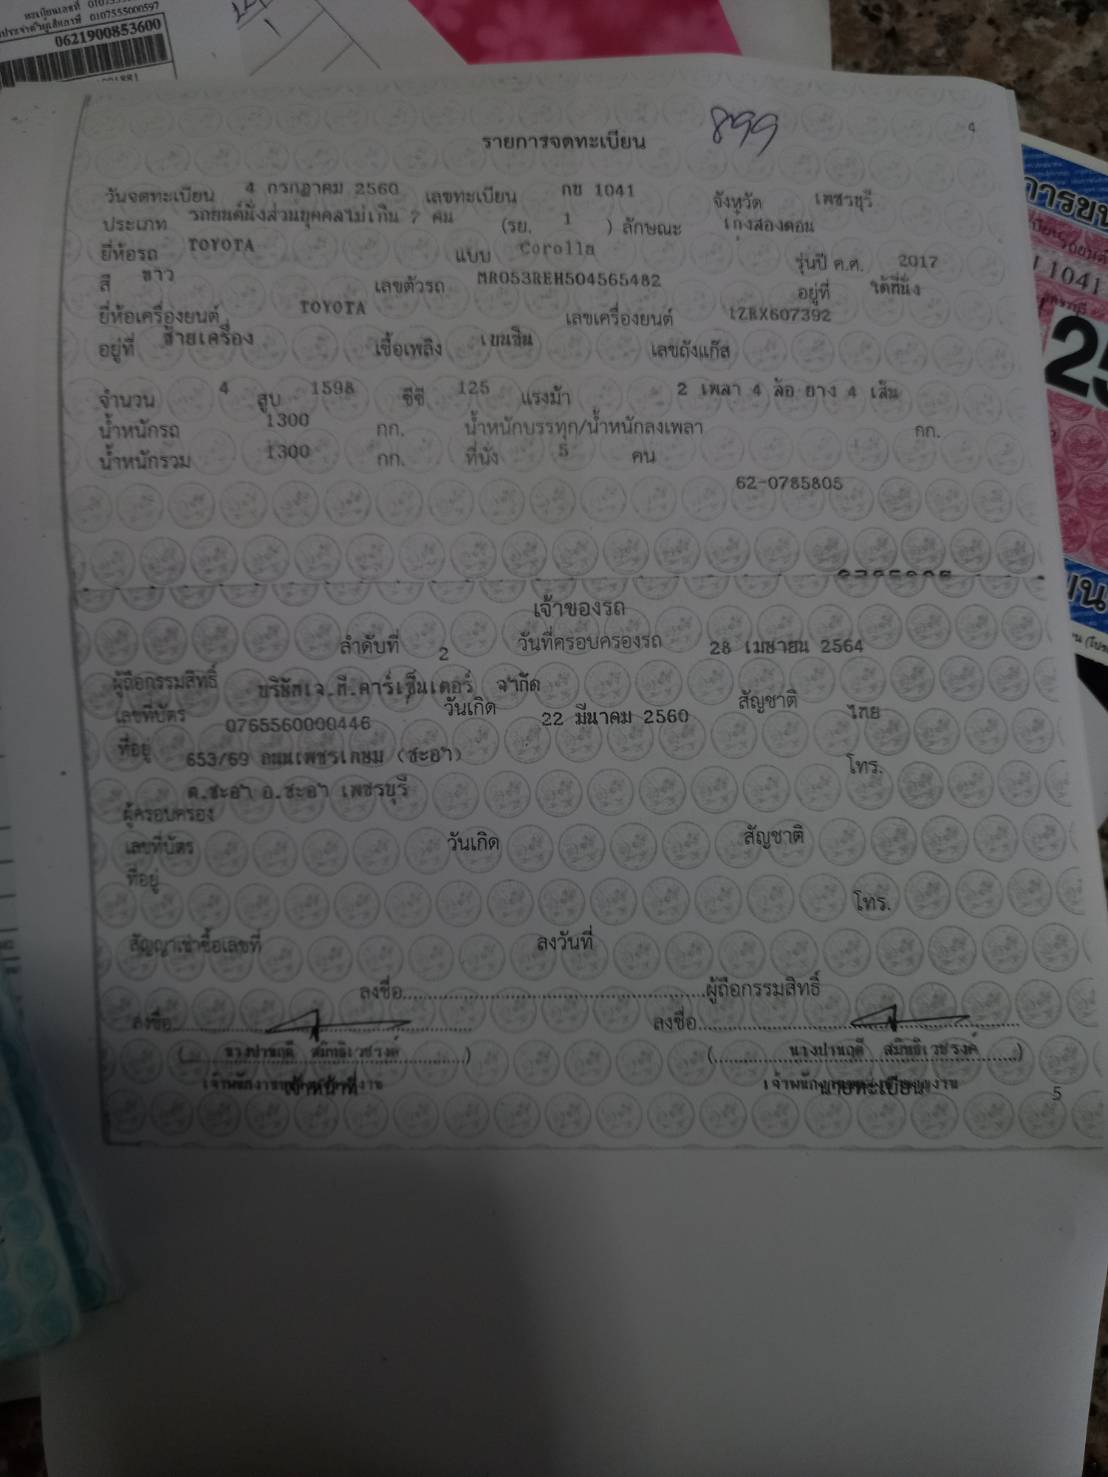 0107555000597
0621900853600
899
4
รายการจดทะเบียน
วันจดทะเบียน 4 กรกฎาคม 2560 เลขทะเบียน กข 1041 จังหวัด เพชรบุรี
ประเภท รถยนต์นั่งส่วนบุคคลไม่เกิน 7 คน (รย. 1 ) ลักษณะ เก๋งสองตอน
ยี่ห้อรถ TOYOTA แบบ Corolla รุ่นปี ค.ศ. 2017
สี ขาว เลขตัวรถ MR053REH504565482 อยู่ที่ ใต้ที่นั่ง
ยี่ห้อเครื่องยนต์ TOYOTA เลขเครื่องยนต์ 1ZRX607392
อยู่ที่ ซ้ายเครื่อง เชื้อเพลิง เบนซิน เลขถังแก๊ส
จำนวน 4 สูบ 1598 ซีซี 125 แรงม้า 2 เพลา 4 ล้อ ยาง 4 เส้น
น้ำหนักรถ 1300 กก. น้ำหนักบรรทุก/น้ำหนักลงเพลา กก.
น้ำหนักรวม 1300 กก. ที่นั่ง 5 คน
62-0785805
เจ้าของรถ
ลำดับที่ 2 วันที่ครอบครองรถ 28 เมษายน 2564
ผู้ถือกรรมสิทธิ์ บริษัทเจ.ที.คาร์เซ็นเตอร์ จำกัด
เลขที่บัตร 0765560000446 วันเกิด 22 มีนาคม 2560 สัญชาติ ไทย
ที่อยู่ 653/69 ถนนเพชรเกษม (ชะอำ) โทร.
ต.ชะอำ อ.ชะอำ เพชรบุรี
ผู้ครอบครอง
เลขที่บัตร วันเกิด สัญชาติ
ที่อยู่ โทร.
สัญญาเช่าซื้อเลขที่ ลงวันที่
ลงชื่อ ผู้ถือกรรมสิทธิ์
ลงชื่อ ลงชื่อ
( นางปานฤดี สมิทธิเวชรงค์ ) ( นางปานฤดี สมิทธิเวชรงค์ )
เจ้าหน้าที่ นายทะเบียน
5
การขน
1041
25